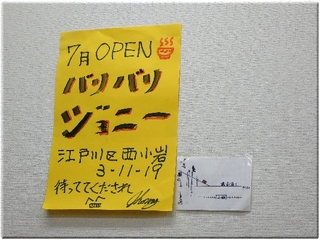 7月 OPEN
バリバリ
ジョニー
江戸川区西小岩
3-11-19
待っててくだされ